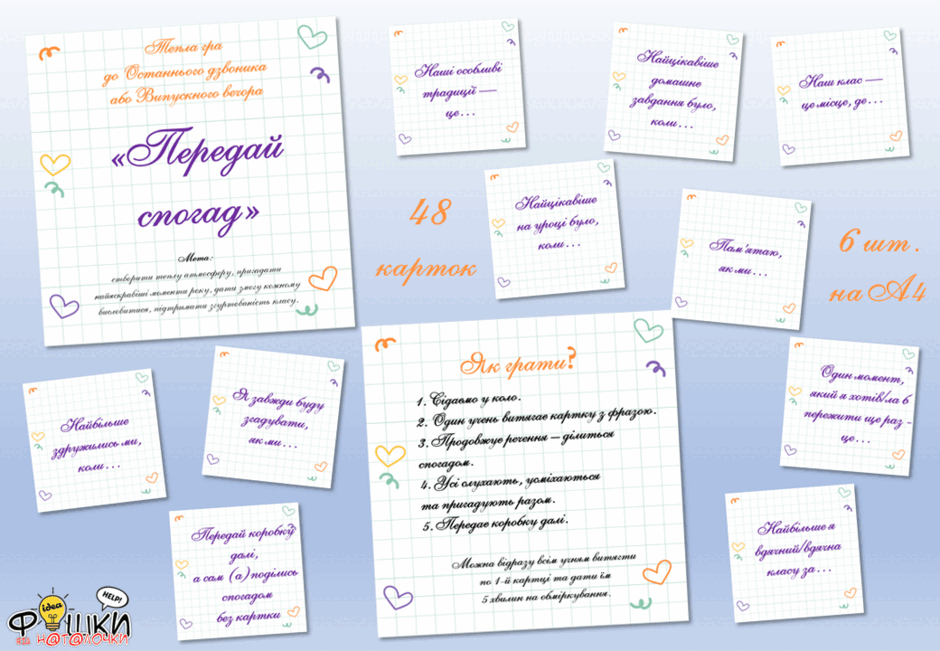 Тепла гра
до Останнього дзвоника
або Випускного вечора
«Передай
спогад»
Мета:
створити теплу атмосферу, пригадати
найяскравіші моменти року, дати змогу кожному
висловитися, підтримати згуртованість класу.
Наші особливі
традиції —
це...
Найцікавіше
домашнє
завдання було,
коли...
Наш клас —
це місце, де...
48
карток
Найцікавіше
на уроці було,
коли...
Пам'ятаю,
як ми...
6 шт.
на А4
Найбільше
здружились ми,
коли...
Я завжди буду
згадувати,
як ми...
Як грати?
1. Сідаємо у коло.
2. Один учень витягає картку з фразою.
3. Продовжує речення — ділиться
спогадом.
4. Усі слухають, усміхаються
та пригадують разом.
5. Передає коробку далі.
Можна відразу всім учням витягти
по 1-й картці та дати їм
5 хвилин на обміркування.
Один момент,
який я хотів/ла б
пережити ще раз -
це...
Передай коробку
далі,
а сам (а) поділись
спогадом
без картки
Найбільше я
вдячний/вдячна
класу за...
idea
HELP!
Фішки
від Н@т@лочки